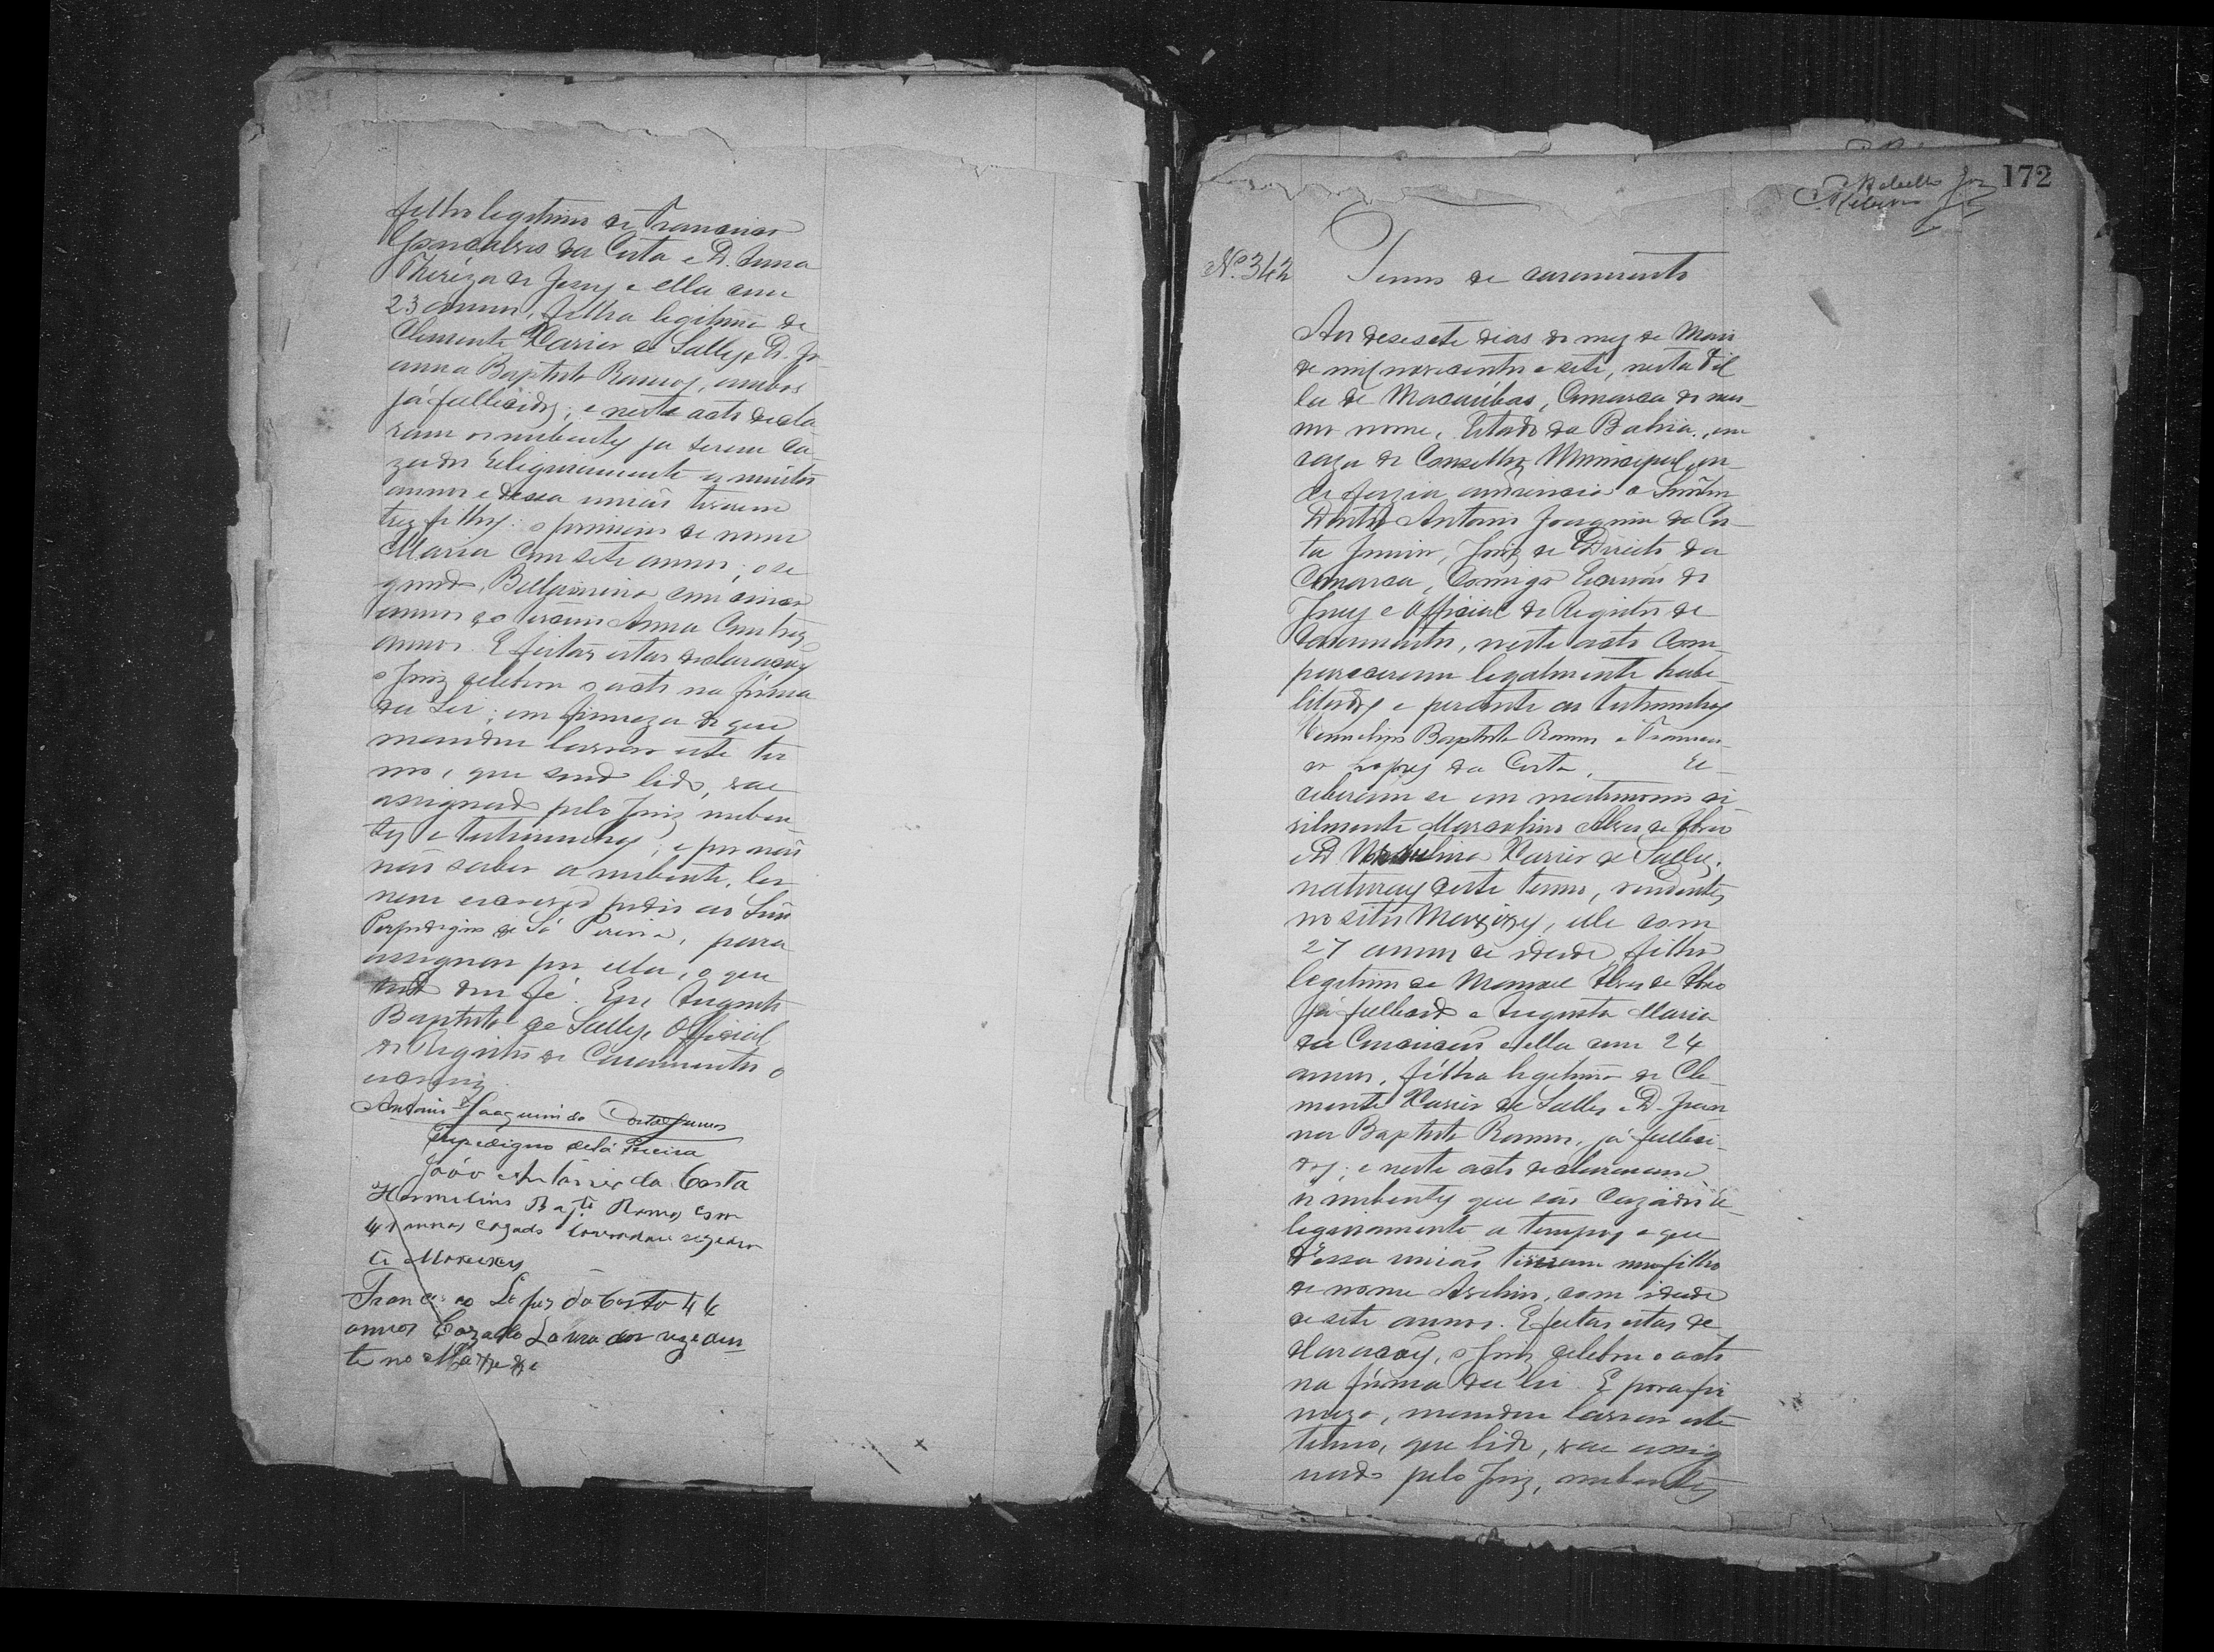 filho legitimo de Francisco
Gonçalves da Costa e D. Anna
Thereza de Jesus e ella com
23 annos, filha legitima de
Clemente Xavier de Salles e D. Jo-
anna Baptista Ramos, ambos
já fallecidos; e neste acto decla-
ram os nubentes ja serem ca-
zados Religiosamente a muitos
annos e dessa união tiverem
trez filhos: o primeiro de nome
Maria com sete annos; o se-
gundo, Bellarmino com cinco
annos e o terceiro Anna com trez
annos. E feitas estas declarações
o Juiz celebrou o acto na fórma
da Lei; em firmeza do que
mandou lavrar este ter
mo, que sendo lido, vae
assignado pelo Juiz, nuben-
tes e testimunhas; e por não
não saber a nubente, ler
nem escrever pedio ao Snr
Perpedigno de Sá Pereira, para
assignar por ella, o que
tudo dou fé. Eu Augusto
Baptista de Salles, Official
do Registro de Casamentos o
escrevy.
Antonio Joaquim da Costa Junior
Perpedigno de Sá Pereira
João Antonio da Costa
Hermelino Bapta Ramos com
41 annos cazado lavrador rezeden
te Morexes
Francisco Lopes da Costa 46
annos Cazado Lavrador rezeden
te no
172
Rebello Jor
Rebello Jor
Nº 342 Termo de casamento
Aos desesete dias do mez de Maio
de mil novecentos e sete, nesta Vil
la de Macaúbas, Comarca do mes-
mo nome, Estado da Bahia, em
caza do Conselho Municipal, on-
de fazia audiencia o Senhor
Doutor Antonio Joaquim da Cos-
ta Junior, Juiz de Direito da
Comarca, Comigo Escrivão do
Jury e Official do Registro de
Casamentos, neste acto Com-
pareceram legalmente habi-
litados e perante as testimunhas
Hermelino Baptista Ramos e Francis-
co Lopes da Costa, Re-
ceberam se em matrimonio ci-
vilmente Marcolino Alves de Abreo
e D Xavier de Salles,
naturaes deste termo, rendentes
no sitio, elle com
27 annos de idade, filho
legitimo de Manoel Alves de Abreo
já fallecido e Augusta Maria
da Conceição e ella com 24
annos, filha legitima de Cle-
mente Xavier de Salles e D. Joan
na Baptista Ramos, já falleci-
dos; e neste acto declararam
os nubentes que são Cazados Re-
legiosamente a tempos e que
dessa união tiveram um filho
de nome Avelino, com idade
de sete annos. E feitas estas de
claracoes, o Juiz celebrou o acto
na fórma da lei. E para fir
meza, mandou lavrar este
termo, que lido, vae assig
nado pelo Juiz, nubentes